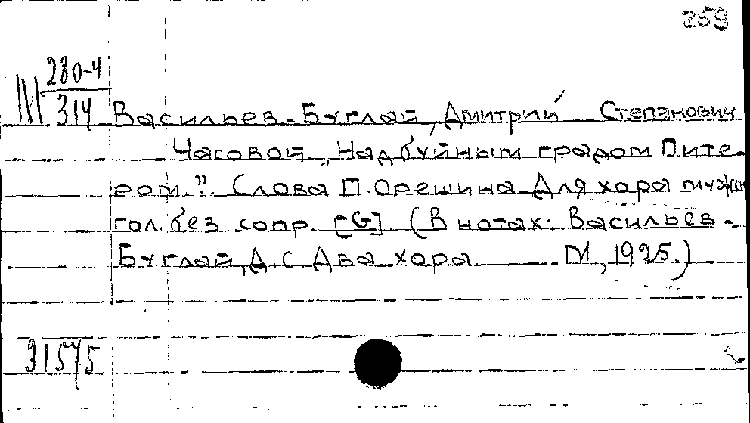 269
М 280-4
314 Васильев-Буглай, Дмитрий Степанович
Часовой „Над буйным градом Пите-
ром". Слова П. Орешина Для хора муж.
гол. без сопр. [G] (В нотах: Васильев-
Буглай, Д. С Два хора М, 1925.)
31575